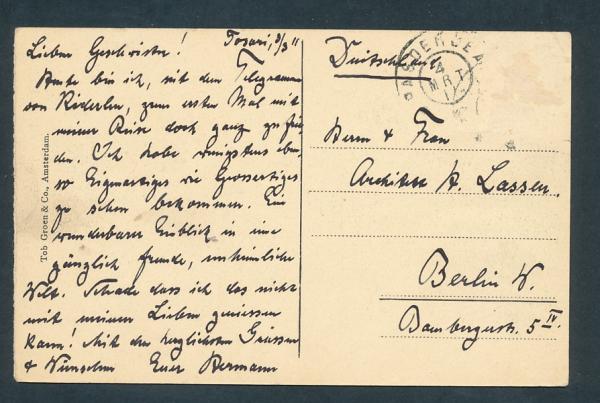 Tosari, 3/3 11
Lieben Geschwister!
Heute bin ich, mit dem Telegramm
von Kiderlen, zum ersten Mal mit
meiner Reise doch ganz zufrie
den. Ich habe wenigstens eben
so Eigenartiges wie Grossartiges
zu sehen bekommen. Ein
wunderbarer Einblick in eine
gänzlich fremde, unheimliche
Welt. Schade dass ich das nicht
mit meinen Lieben geniessen
kann! Mit den herzlichsten Grüssen
& Wünschen Euer Hermann
Tob Groen & Co., Amsterdam.
Deutschland
MRT
Herrn & Frau
Architekt H. Lassen
Berlin W.
Bambergerstr. 5 IV.